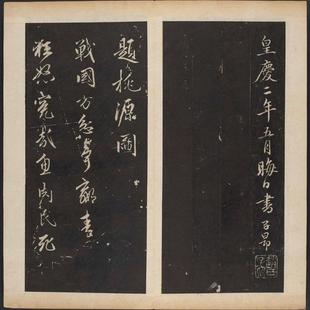 皇慶二年五月晦日書子昂
題桃源圖
戰國方忿爭嬴秦
狂怒究哉魚肉民死